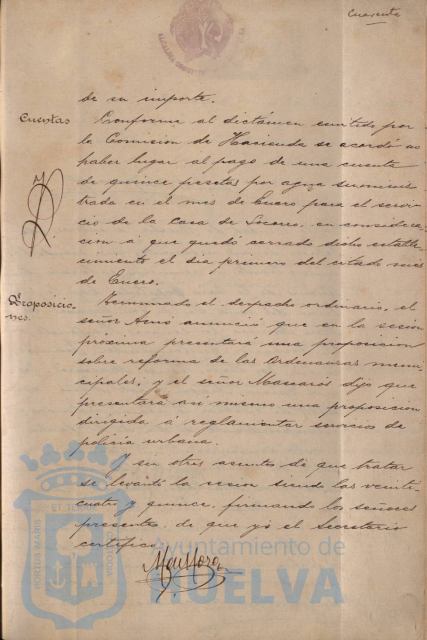 Cuarenta
de su importe.
Cuentas
Conforme al dictámen emitido por
la Comision de Hacienda se acordó no
haber lugar al pago de una cuenta
de quince pesetas por agua suminis
trada en el mes de Enero para el servi-
cio de la Casa de Socorro, en considera-
cion á que quedó cerrado dicho estable-
cimiento el dia primero del citado mes
de Enero.
Proposicio-
nes.
Terminado el despacho ordinario, el
señor anunció que en la sesion
próxima presentará una proposicion
sobre reforma de las Ordenanzas muni-
cipales, y el señor dijo que
presentará asi mismo una proposicion
dirigida á reglamentar servicios de
policia urbana.
Y sin otros asuntos de que tratar
se levantó la sesion siendo las veinti-
cuatro y quince, firmando los señores
presentes, de que yo el Secretario
certifico.
Ayuntamiento de
HUELVA
PORTUS MARIS
ET TERRAE
CUSTODIA